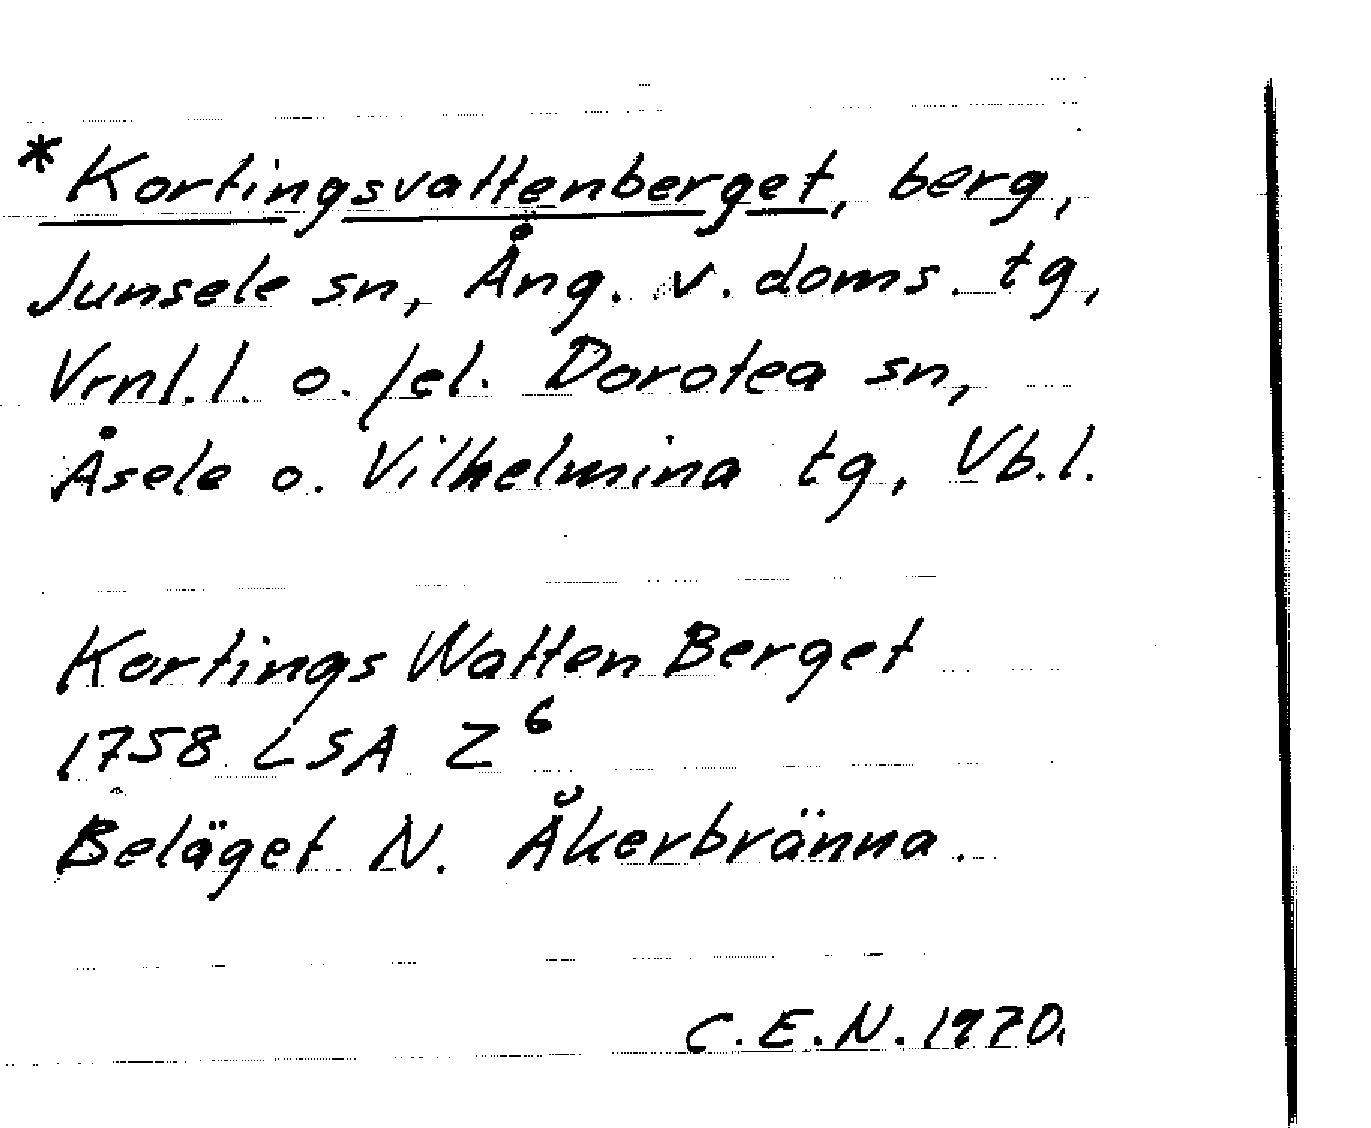 *Kortingsvattenberget, berg,
Junsele sn, Ång. v. doms. tg,
Vrnl.l. o./el. Dorotea sn,
Åsele o. Vilhelmina tg, Vb.l.
Kortings Watten Berget
1758 LSA Z⁶
Beläget N. Åkerbränna.
C.E.N. 1970.